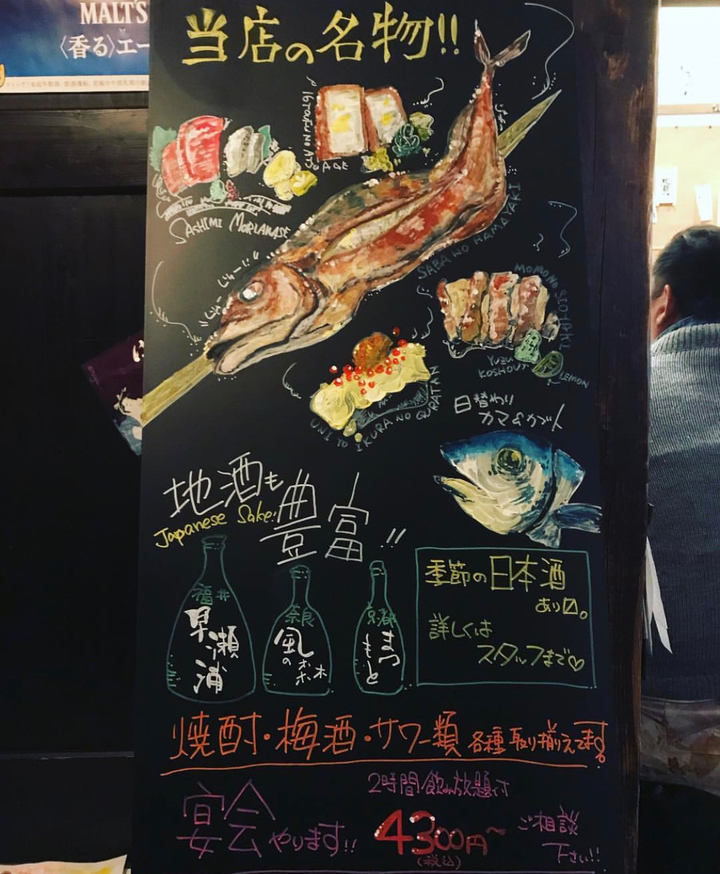 MALT'S
〈香る〉エー
当店の名物!!
SASHIMI MORIAWASE
SABA NO HAMAYAKI
MOMO NO
YUZU
KOSHOU
LEMON
UNI TO IKURA NO GURATAN
日替わり
カマ&カブト
地酒も
豊富!!
Japanese Sake!
福井
早瀬浦
奈良
風の
京都
まつ
もと
季節の日本酒
あり〼。
詳しくは
スタッフまで♡
焼酎・梅酒・サワー類 各種取り揃えてます。
2時間飲み放題付
宴会やります!! 4300円~ ご相談
(税込) 下さい!!